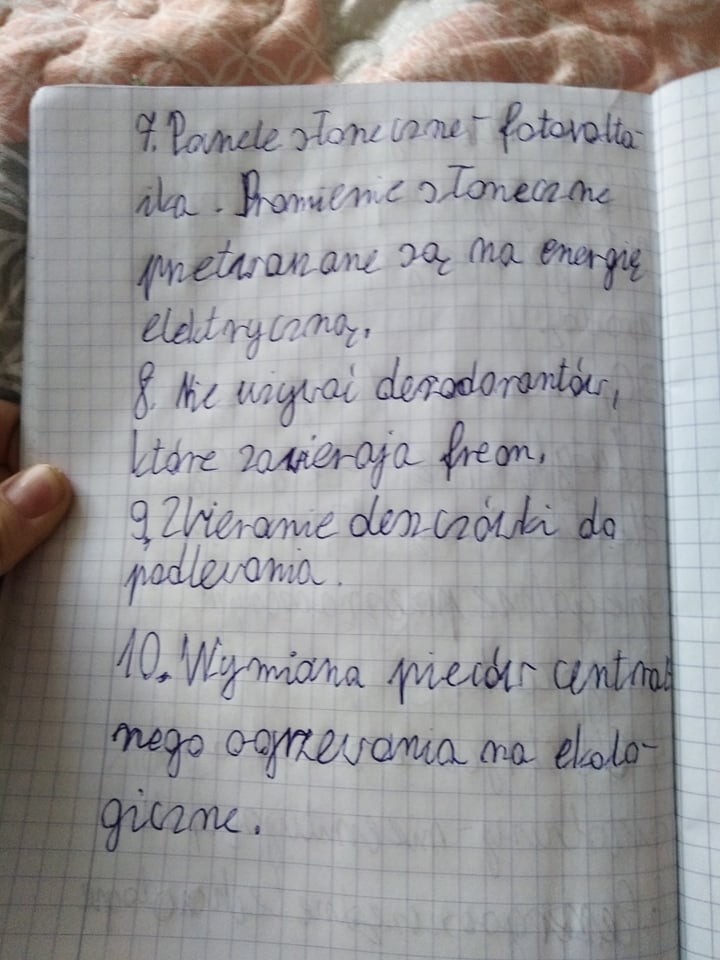 7. Panele słoneczne - fotovolta-
ika. Promienie słoneczne
pretwarzane są na energię
elektryczną.
8. Nie używać dezodorantów,
które zawierają freon.
9. Zbieranie deszczówki do
podlewania.
10. Wymiana pieców central
nego ogrzewania na ekolo-
giczne.